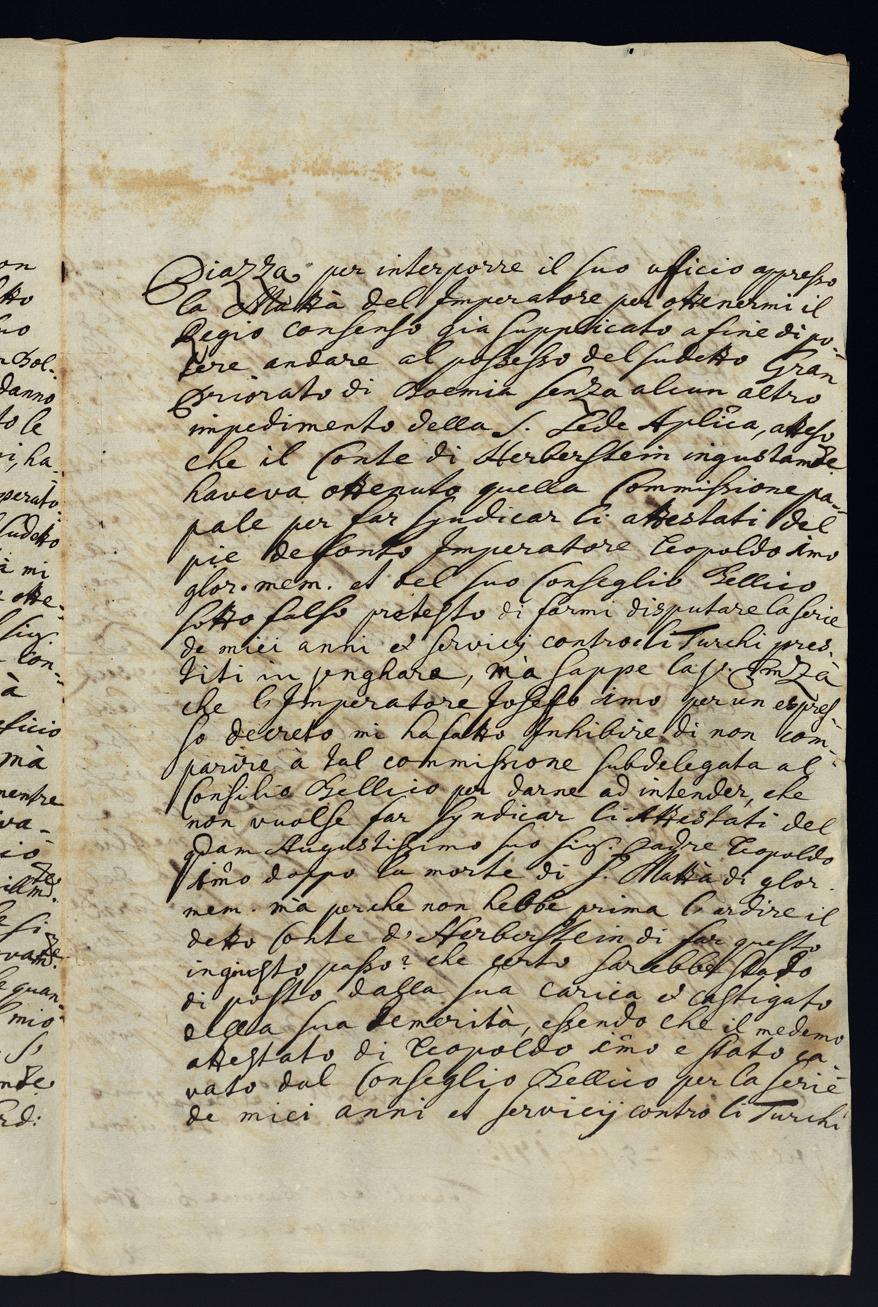 Piazza per interporre il suo ufficio appresso
la Mattà del Imperatore per ottenermi il
Regio consenso gia supplicato a fine di po-
tere andare al possesso del sudetto Gran
Priorato di Boemia senza alcun altro
impedimento della S. Sede Aplica, atteso
che il Conte di Herberstein ingustamte
haveva ottenuto quella Commissione pa-
pale per far syndicar li attestati del
pie defonto Imperatore Leopoldo Imo
glor. mem. et del suo Conseglio Bellico
sotto falso pretesto di farmi disputare la serie
de miei anni et servicij contro li Turchi pres-
titi in, mà sappe la
che l'Imperatore Josefo Imo per un espres-
so decreto mi ha fatto Inhibire di non com-
parire à tal commissione subdelegata al
Consilio Bellico per darne ad intender, che
non vuolse far syndicar li Attestati del
qdam Augustissimo suo Sig. Padre Leopoldo
Imo doppo la morte di S. Mattà di glor.
mem. mà perche non hebbe prima l'ardire il
detto Conte d'Herberstein di far questo
ingiusto passo? che certo sarebbe stato
di posto dalla sua carica et castigato
della sua temerità, essendo che il medemo
attestato di Leopoldo Imo e stato ca-
vato dal Conseglio Bellico per la serie
de miei anni et servicij contro li Turchi
on
tto
no
danno
to le
vi, ha-
perato-
sudetto
à mi
otte-
sig.
Con-
à
ficio
mà
mentre
va-
ciò
le si
le quan-
mio
S.